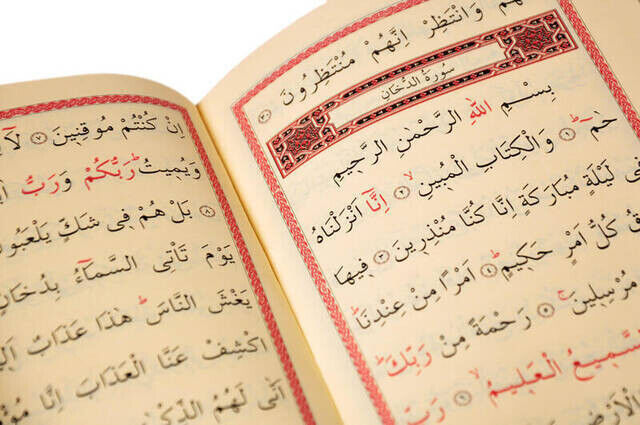 وَانْتَظِرْ اِنَّهُمْ مُنْتَظِرُونَ
سُورَةُ الدُّخَانِ
بِسْمِ اللّٰهِ الرَّحْمٰنِ الرَّحٖيمِ
حٰمٓ ١ وَالْكِتَابِ الْمُبٖينِ ٢ اِنَّٓا اَنْزَلْنَاهُ
فٖى لَيْلَةٍ مُبَارَكَةٍ اِنَّا كُنَّا مُنْذِرٖينَ ٣ فٖيهَا
كُلُّ اَمْرٍ حَكٖيمٍ ٤ اَمْرًا مِنْ عِنْدِنَا
مُرْسِلٖينَ ٥ رَحْمَةً مِنْ رَبِّكَ
السَّمٖيعُ الْعَلٖيمُ ٦ رَبِّ
اِنْ كُنْتُمْ مُوقِنٖينَ ٧ لَٓا
وَيُمٖيتُ رَبُّكُمْ وَرَبُّ
٨ بَلْ هُمْ فٖى شَكٍّ يَلْعَبُونَ
يَوْمَ تَأْتِى السَّمَٓاءُ بِدُخَانٍ
يَغْشَى النَّاسَ هٰذَا عَذَابٌ
اِكْشِفْ عَنَّا الْعَذَابَ اِنَّا
اَنّٰى لَهُمُ